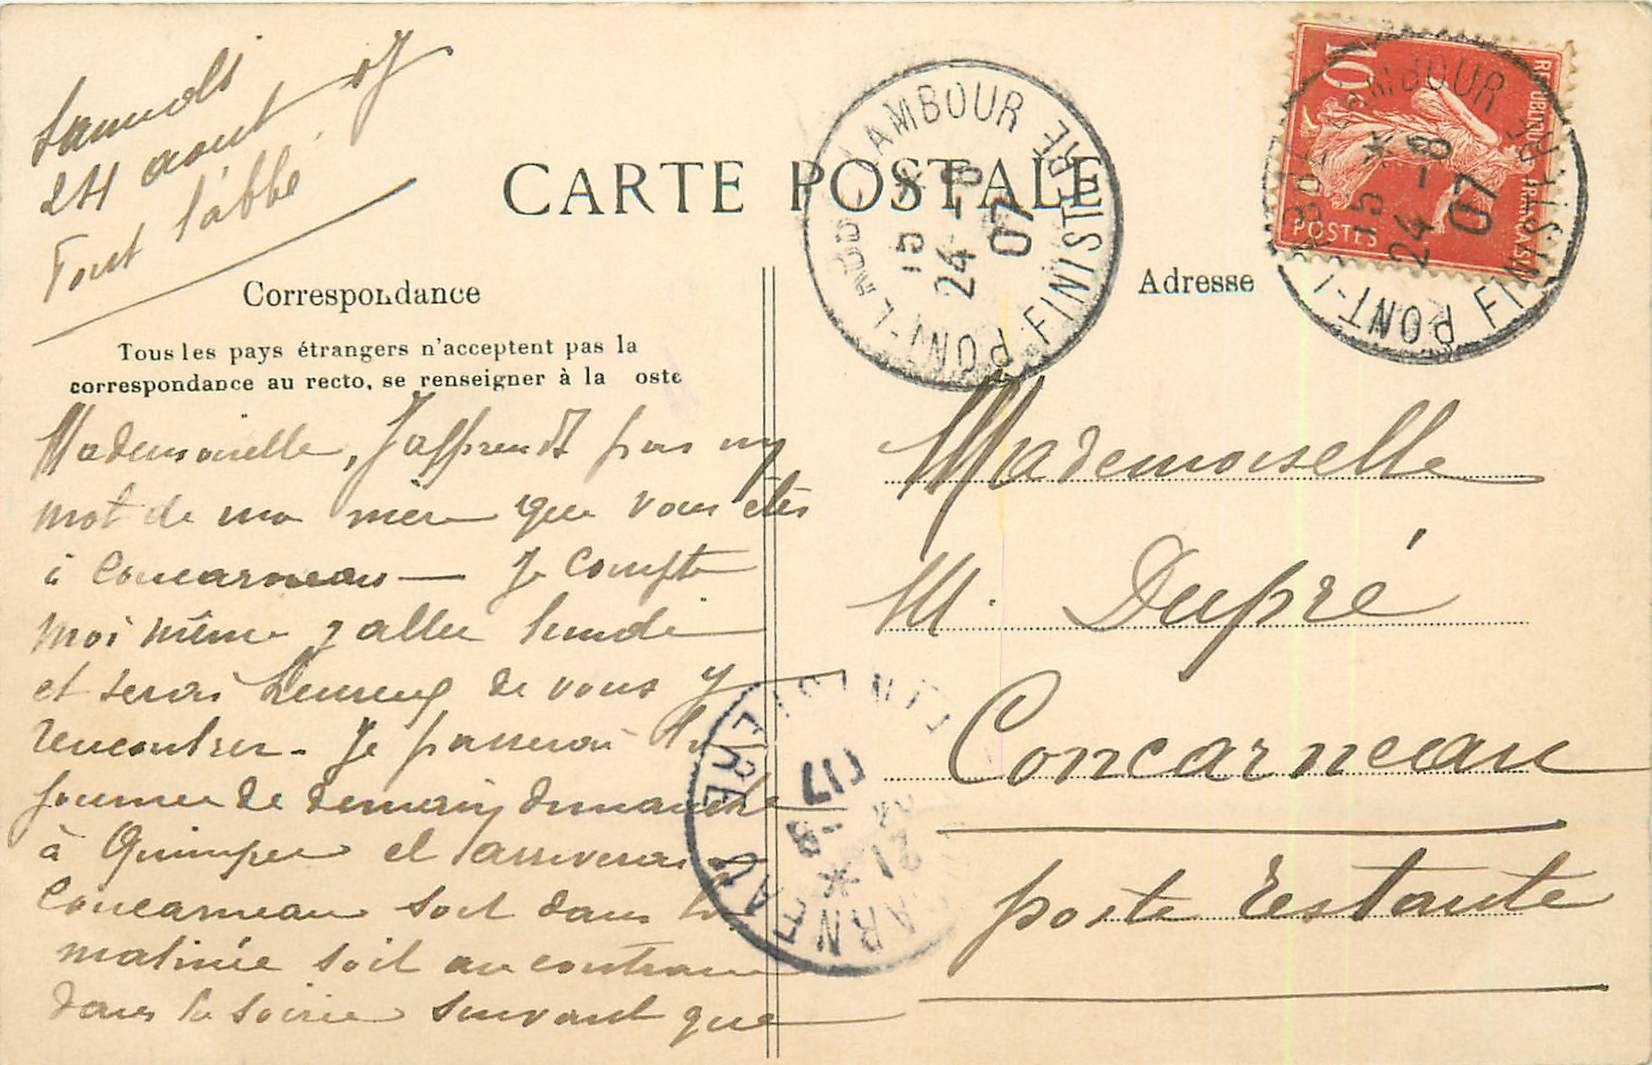 Samedi
24 aout 07
Pont l'abbé
CARTE POSTALE
Correspondance
Tous les pays étrangers n'acceptent pas la
correspondance au recto, se renseigner à la oste
Mademoiselle, J'apprends par un
mot de ma mère que vous êtes
à Concarneau — Je compte
moi même y aller lundi
et serai heureux de vous y
rencontrer - Je passerai la
journée de demain dimanche
à Quimper et arriverai à
Concarneau soit dans la
matinée soit au contraire
dans la soirée suivant que
PONT-L'ABBÉ-LAMBOUR FINISTÈRE
15 *
24 - 8
07
Adresse
10
RÉPUBLIQUE FRANÇAISE
POSTES
PONT-L'ABBÉ LAMBOUR FINISTÈRE
15 *
24 - 8
07
Mademoiselle
M. Dupré
Concarneau
poste restante
CONCARNEAU FINISTERE